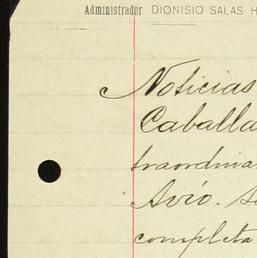 Administrador DIONISIO SALAS H
Noticias
Caballa
traordina
Avío. Se
completa